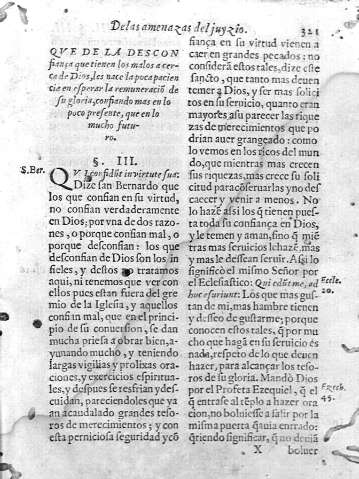 De las amenazas del juyzio.
321
QVE DE LA DESCON
fiança que tienen los malos a cer-
ca de Dios, les nace la poca pacien
cia en esperar la remuneració de
su gloria, confiando mas en lo
poco presente, que en lo
mucho futu-
ro.
§. III.
S. Ber.
QVi confidũt in virtute sua:
Dize san Bernardo que
los que confian en su virtud,
no confian verdaderamente
en Dios; por vna de dos razo-
nes, o porque confian mal, o
porque desconfian: los que
desconfian de Dios son los in
fieles, y destos no tratamos
aqui, ni tenemos que ver con
ellos pues estan fuera del gre-
mio de la Iglesia, y aquellos
confian mal, que en el princi-
pio de su conuersion, se dan
mucha priesa a obrar bien, a-
yunando mucho, y teniendo
largas vigilias y prolixas ora-
ciones, y exercicios espiritua-
les, y despues se resfrian y des-
cuidan, pareciendoles que ya
an acaudalado grandes teso-
ros de merecimientos; y con
esta perniciosa seguridad y cõ
fiança en su virtud vienen a
caer en grandes pecados: no
considerã estos tales, dize este
santo, que tanto mas deuen
temer a Dios, y ser mas solici
tos en su seruicio, quanto eran
mayores a su parecer las rique
zas de merecimientos que po
drian auer grangeado: como
lo vemos en los ricos del mun
do, que mientras mas crecen
sus riquezas, mas crece su soli
citud para cõseruarlas y no des
caecer y venir a menos. No
lo hazẽ assi los q̃ tienen pues-
ta toda su confiança en Dios,
y le temen y aman, sino q̃ miẽ
tras mas seruicios le hazẽ, mas
y mas le dessean seruir. Assi lo
significò el mismo Señor por
el Eclesiastico: Qui edũt me, ad
huc esurient: Los que mas gus-
tan de mi, mas hambre tienen
y deseo de gustarme; porque
conocen estos tales, q̃ por mu
cho que hagã en su seruicio es
nada, respeto de lo que deuen
hazer, para alcançar los teso-
ros de su gloria. Mandò Dios
por el Profeta Ezequiel, q̃ el
q̃ entrase al tẽplo a hazer ora
cion, no boluiesse a salir por la
misma puerta q̃ auia entrado:
q̃riendo significar, q̃ no deuiã
Eccle.
20.
Ezech.
45.
X
boluer